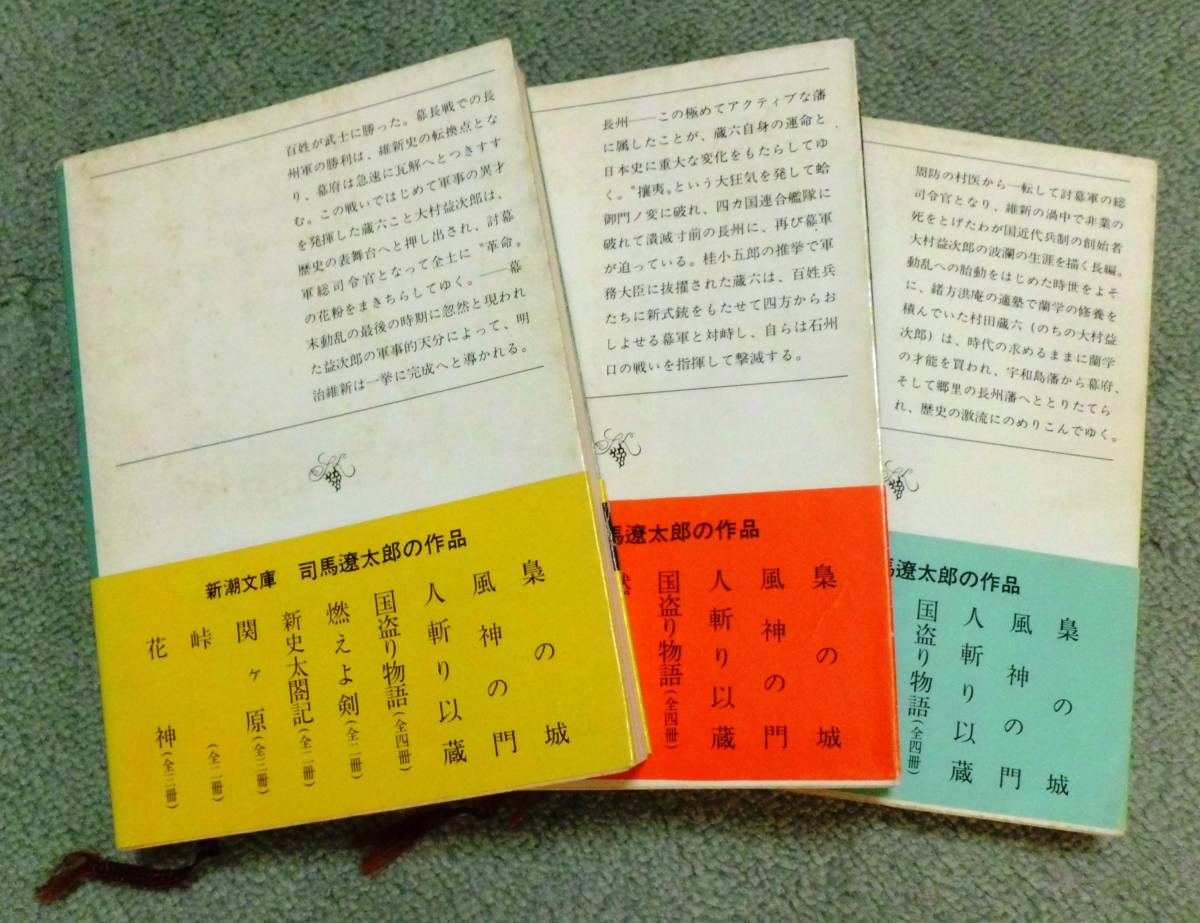 百姓が武士に勝った。幕長戦での長
州軍の勝利は、維新史の転換点とな
り、幕府は急速に瓦解へとつきすす
む。この戦いではじめて軍事の異才
を発揮した蔵六こと大村益次郎は、
歴史の表舞台へと押し出され、討幕
軍総司令官となって全土に〝革命〟
の花粉をまきちらしてゆく。――幕
末動乱の最後の時期に忽然と現われ
た益次郎の軍事的天分によって、明
治維新は一挙に完成へと導かれる。
新潮文庫 司馬遼太郎の作品
梟の城
風神の門
人斬り以蔵
国盗り物語(全四冊)
燃えよ剣(全二冊)
新史太閤記(全二冊)
関ヶ原(全三冊)
峠(全二冊)
花神(全三冊)
長州――この極めてアクティブな藩
に属したことが、蔵六自身の運命と
日本史に重大な変化をもたらしてゆ
く。〝攘夷〟という大狂気を発して蛤
御門ノ変に破れ、四カ国連合艦隊に
破れて潰滅寸前の長州に、再び幕軍
が迫っている。桂小五郎の推挙で軍
務大臣に抜擢された蔵六は、百姓兵
たちに新式銃をもたせて四方からお
しよせる幕軍と対峙し、自らは石州
口の戦いを指揮して撃滅する。
馬遼太郎の作品
梟の城
風神の門
人斬り以蔵
国盗り物語(全四冊)
周防の村医から一転して討幕軍の総
司令官となり、維新の渦中で非業の
死をとげたわが国近代兵制の創始者
大村益次郎の波瀾の生涯を描く長編。
動乱への胎動をはじめた時世をよそ
に、緒方洪庵の適塾で蘭学の修養を
積んでいた村田蔵六(のちの大村益
次郎)は、時代の求めるままに蘭学
の才能を買われ、宇和島藩から幕府、
そして郷里の長州藩へととりたてら
れ、歴史の激流にのめりこんでゆく。
馬遼太郎の作品
梟の城
風神の門
人斬り以蔵
国盗り物語(全四冊)